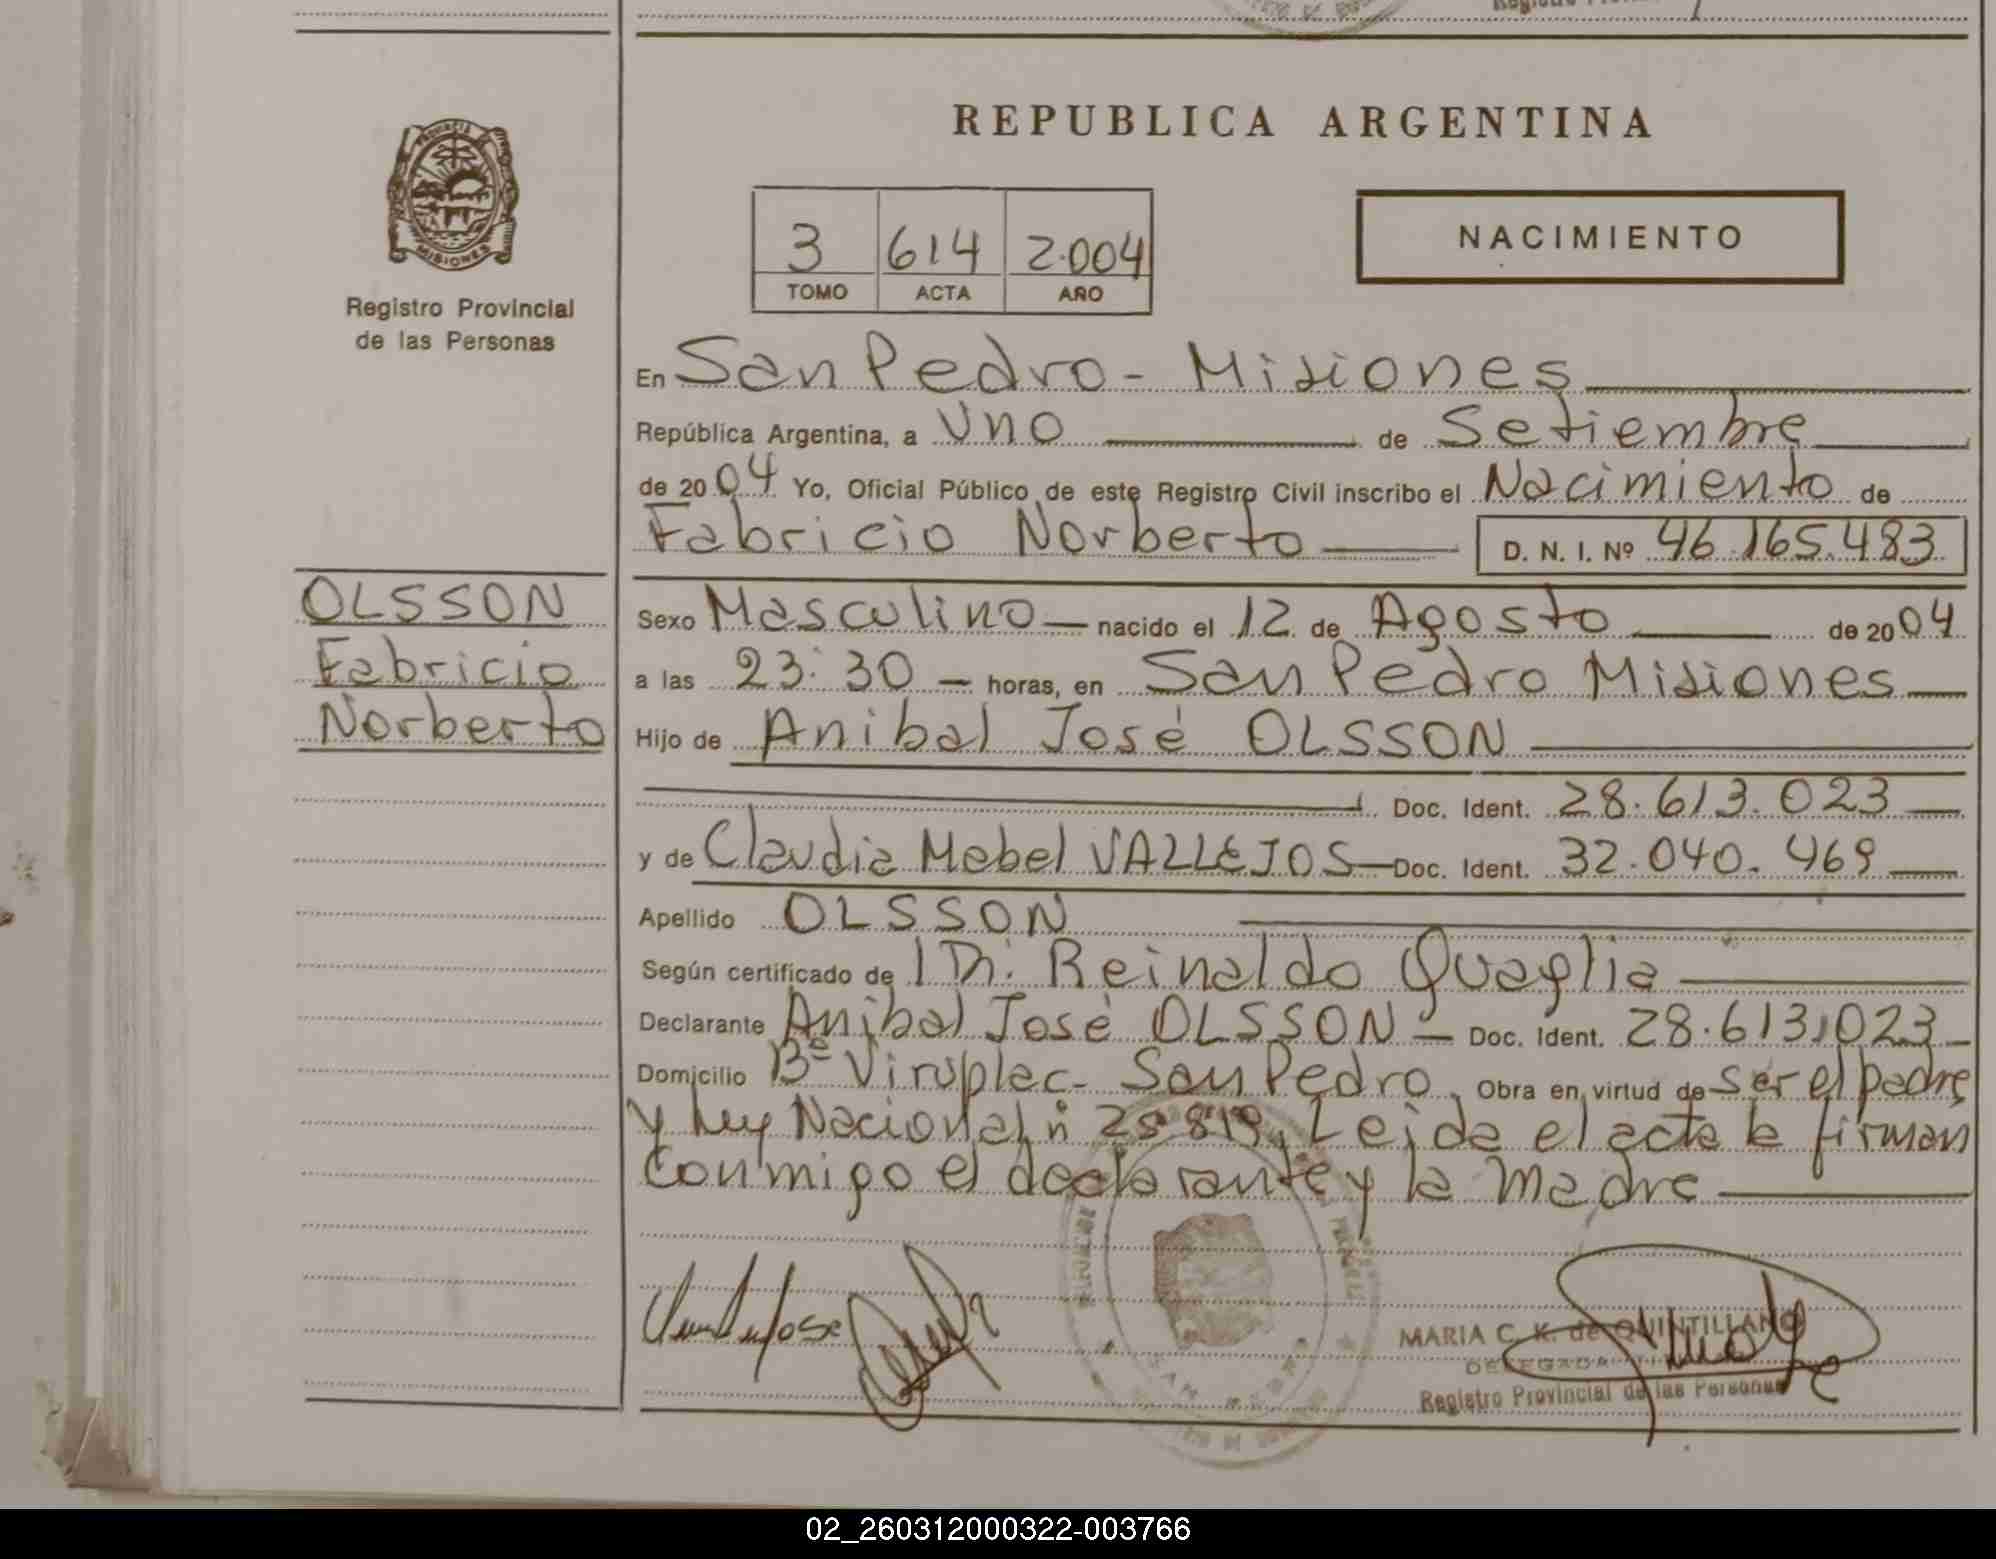 REPUBLICA ARGENTINA
PROVINCIA
MISIONES
Registro Provincial
de las Personas
3 614 2.004
TOMO ACTA AÑO
NACIMIENTO
En San Pedro - Misiones
República Argentina, a Uno de Setiembre
de 2004 Yo, Oficial Público de este Registro Civil inscribo el Nacimiento de
Fabricio Norberto D. N. I. Nº 46.165.483
OLSSON
Fabricio
Norberto
Sexo Masculino nacido el 12 de Agosto de 2004
a las 23:30 horas, en San Pedro Misiones
Hijo de Anibal José OLSSON
Doc. Ident. 28.613.023
y de Claudia Mabel VALLEJOS Doc. Ident. 32.040.469
Apellido OLSSON
Según certificado de Reinaldo Quaglia
Declarante Anibal José OLSSON Doc. Ident. 28.613.023
Domicilio Bº Viruplac - San Pedro Obra en virtud de ser el padre
y Ley Nacional nº 25.819, Leida el acta la firman
conmigo el declarante y la madre
MARIA C. K. de QUINTILLANO
DELEGADA
Registro Provincial de las Personas
SAN PEDRO
02_260312000322-003766